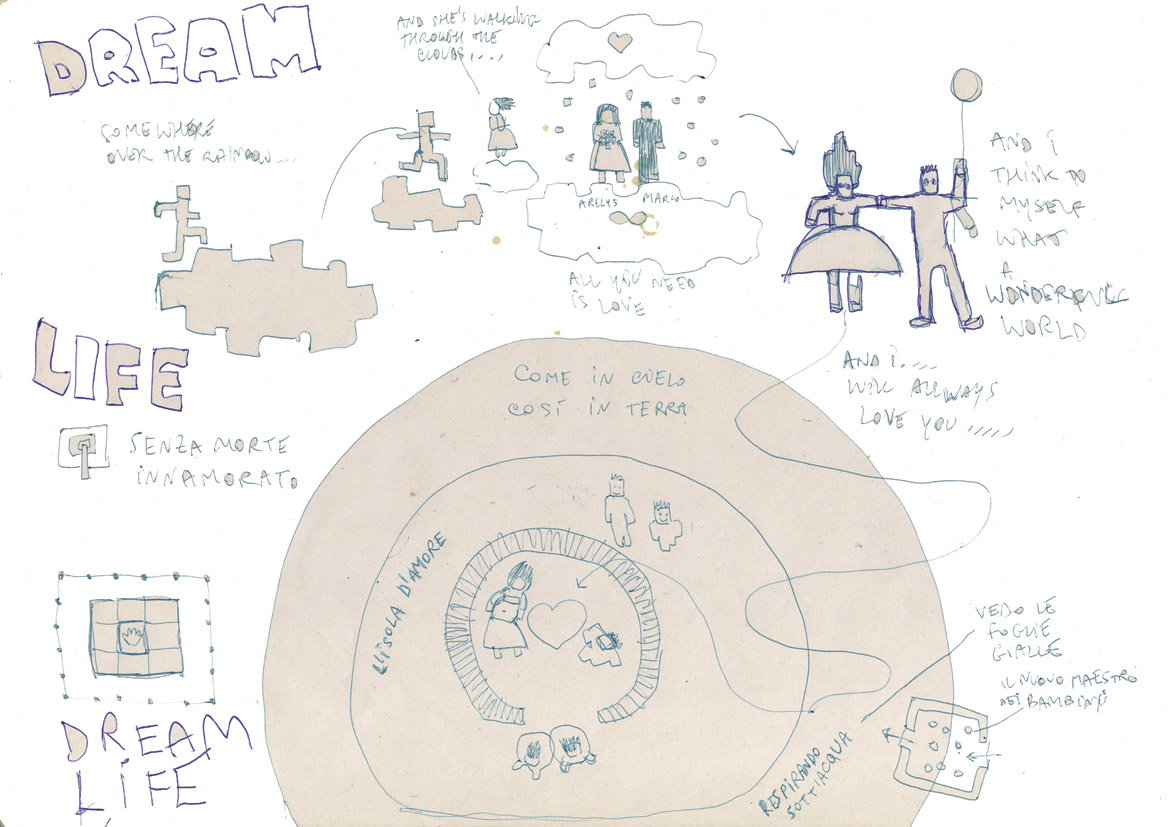 DREAM
AND SHE'S WALKING
THROUGH THE
CLOUDS....
SOMEWHERE
OVER THE RAINBOW...
ARELYS MARCO
ALL YOU NEED
IS LOVE
AND I
THINK TO
MYSELF
WHAT
A
WONDERFULL
WORLD
LIFE
AND I....
WILL ALLWAYS
LOVE YOU,,,,,
COME IN CIELO
COSÍ IN TERRA
SENZA MORTE
INNAMORATO
L'ISOLA D'AMORE
VEDO LE
FOGLIE
GIALLE
IL NUOVO MAESTRO
DEI BAMBINI
RESPIRANDO
SOTT'ACQUA
DREAM
LIFE